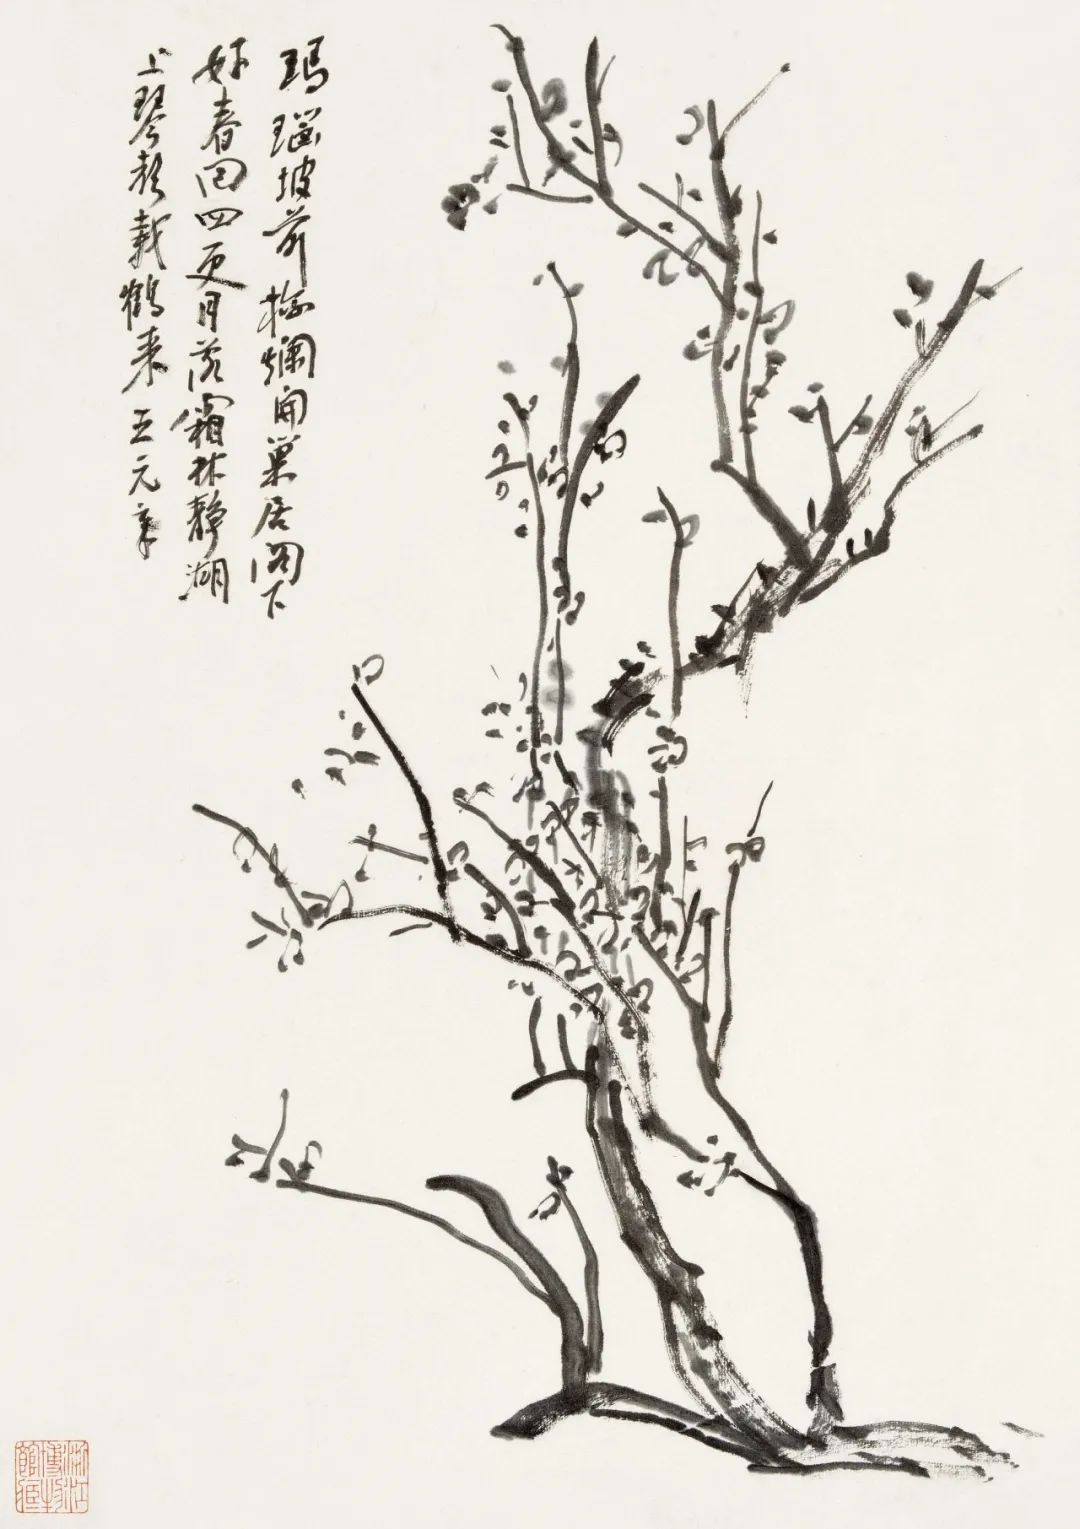 瑪瑙坡前梅爛開巢居阁下
好春回四更月落霜林靜湖
上琴聲載鶴来王元章
浙江
博物
館